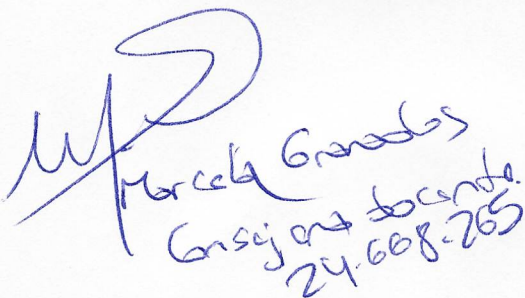 Marcela Granados
Consejera docente.
24.668.265